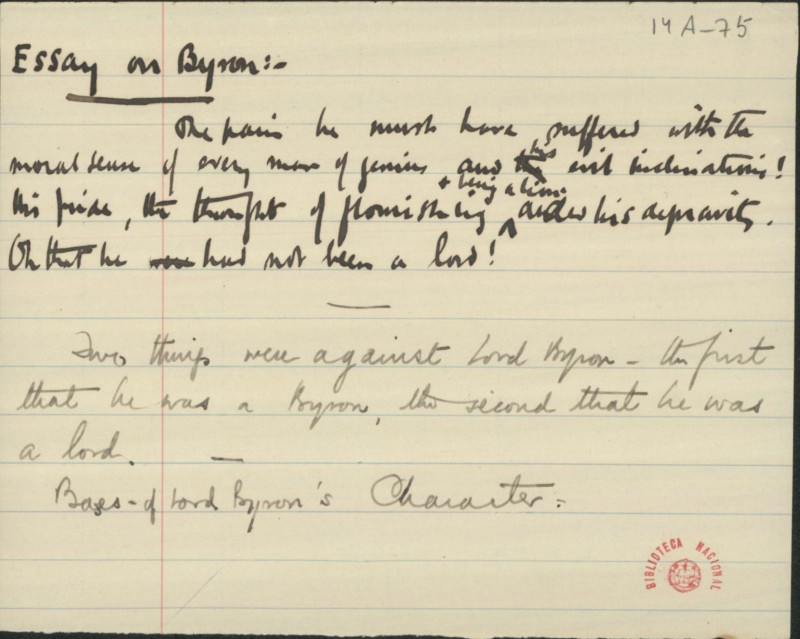 14 A-75
Essay on Byron:-
The pain he must have suffered with the
moral sense of every man of genius and the his evil inclinations!
+ being a lion
His pride, the thought of flourishing under his depravity.
Oh that he were had not been a lord!
Two things were against Lord Byron - the first
that he was a Byron, the second that he was
a lord.
Bases - of Lord Byron's Character:
BIBLIOTECA NACIONAL